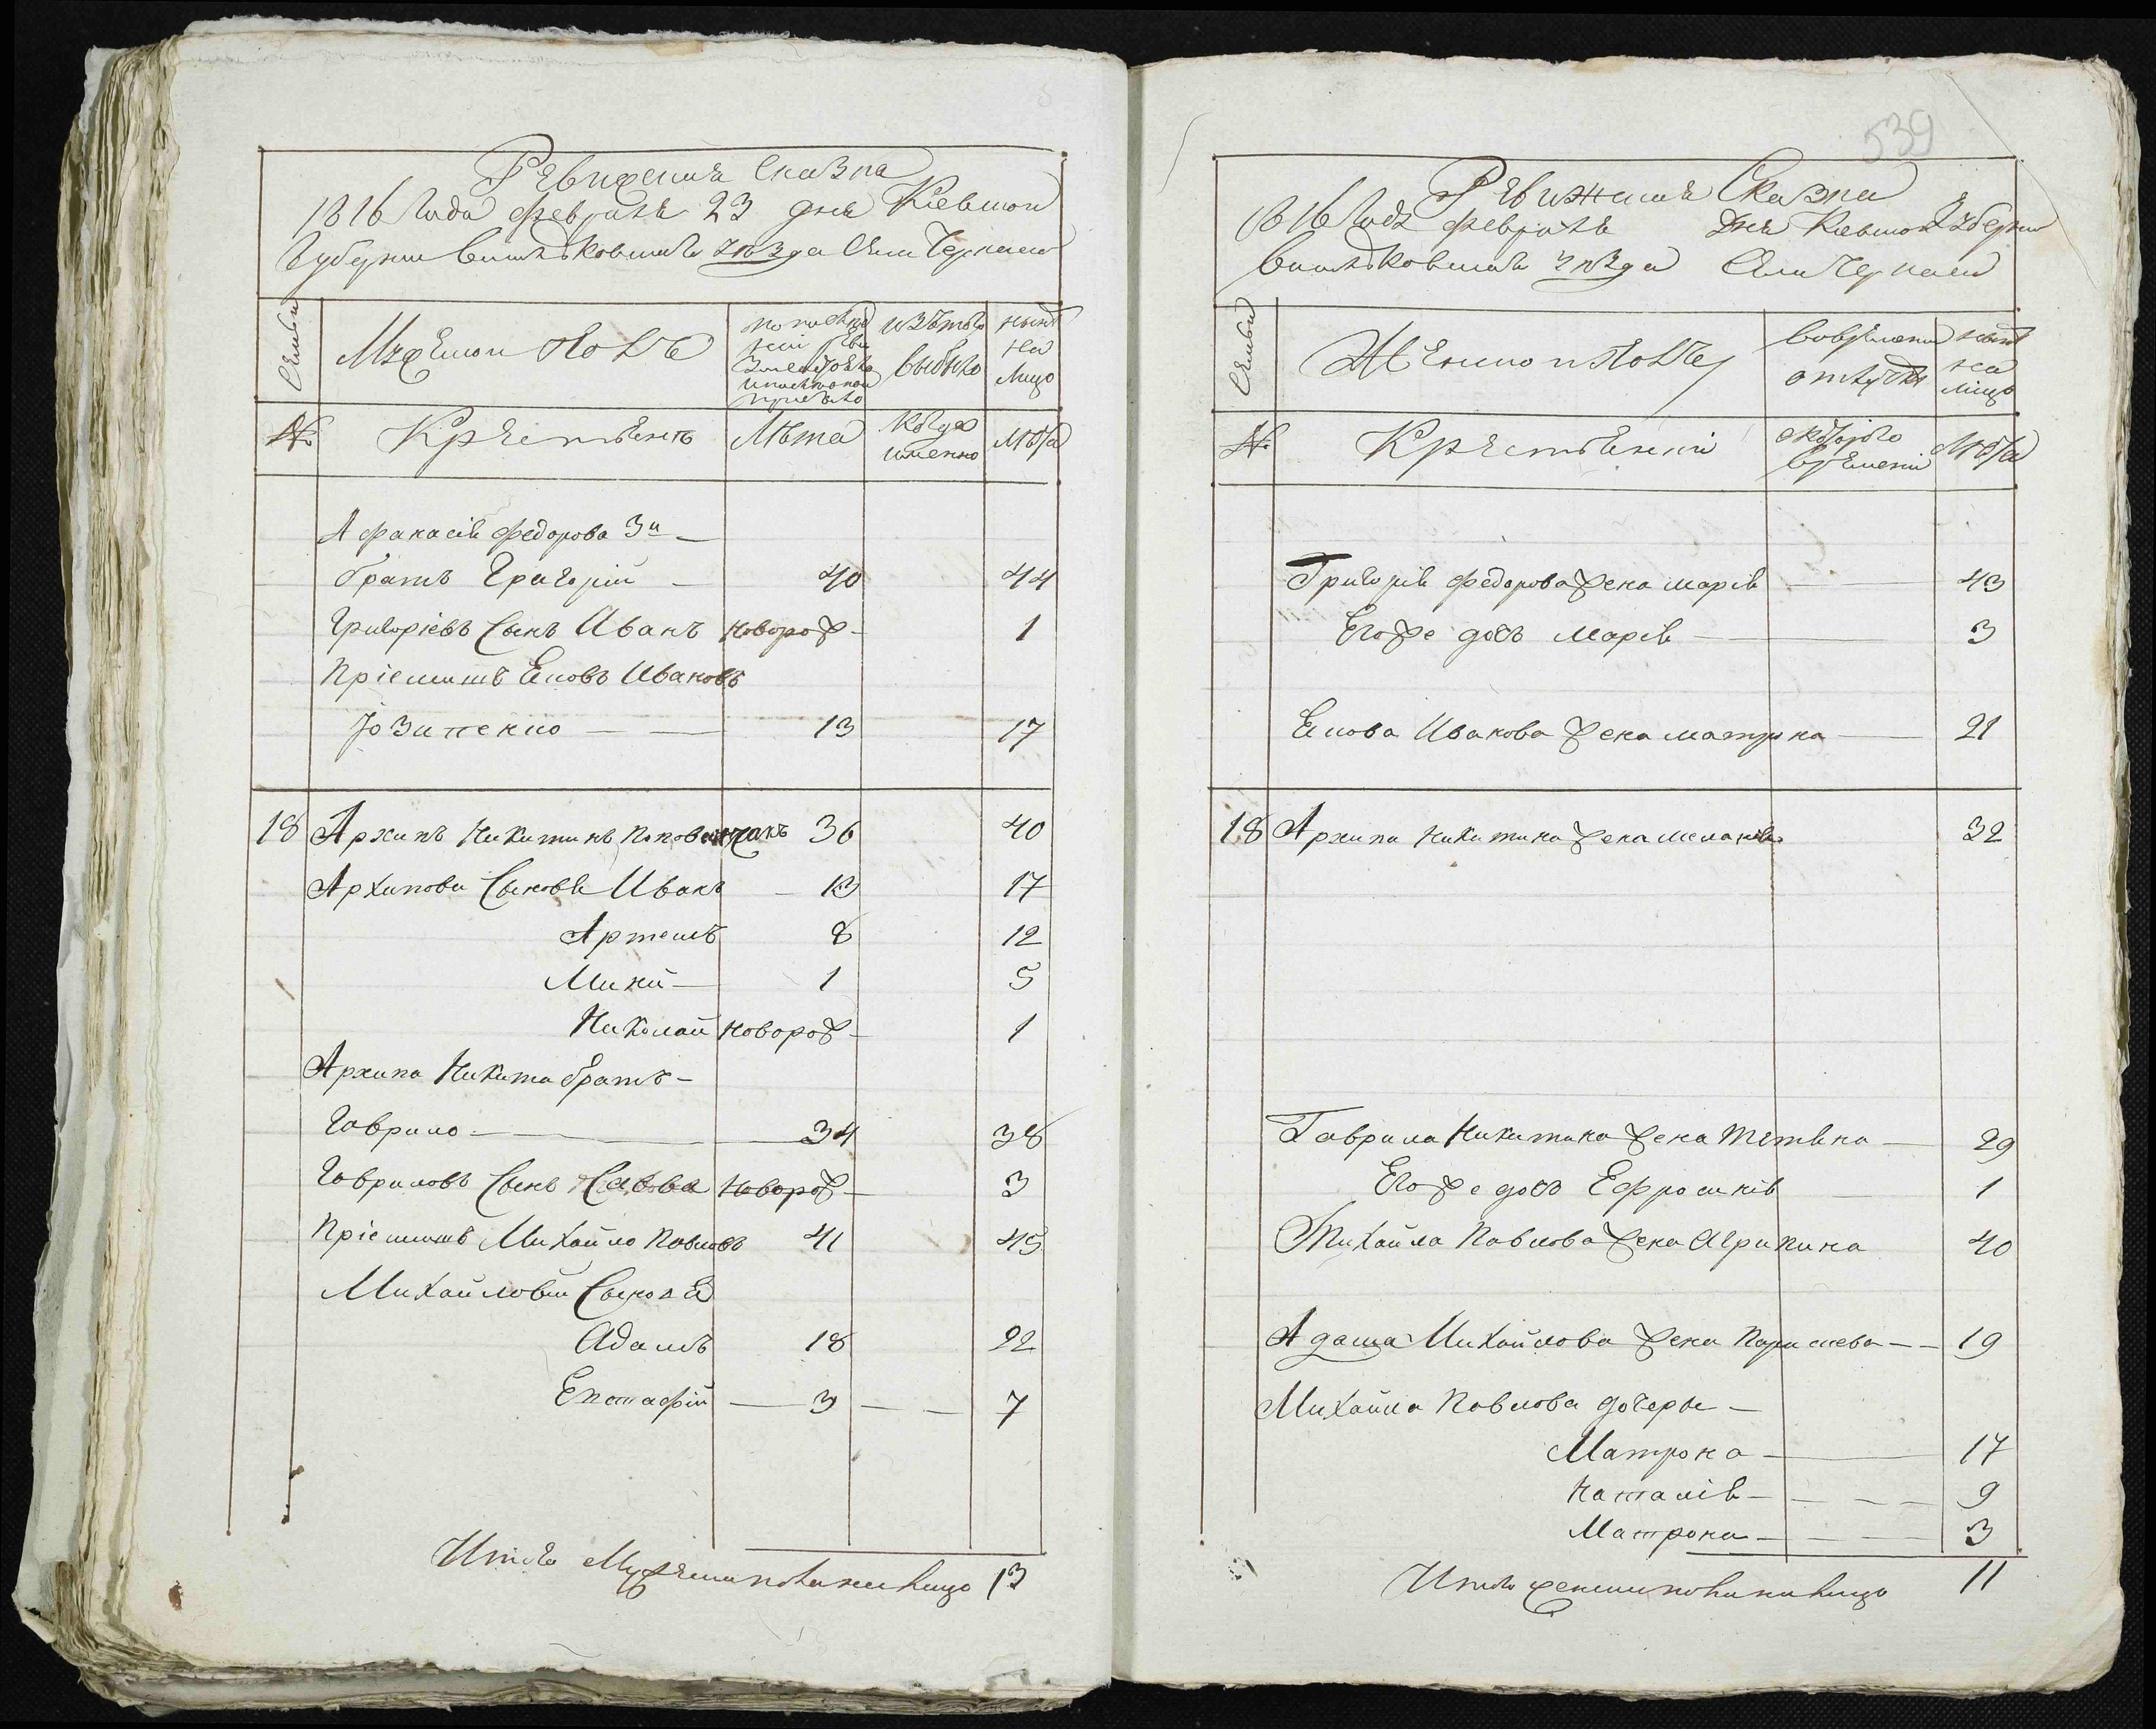 Ревижская Сказка
1816 Года февраля 23 дня Киевской
Губернии Васильковского уѣзда Села Черкаса
Семьи
Мужеской Полъ
по последней ревизии состояло и после того прибыло
изъ того выбыло
нынѣ на лицо
№
Крестьянъ
Лѣта
когда именно
Лѣта
Афанасія Федорова 3й
братъ Григорій 40 44
Григоріевъ Сынъ Иванъ новорож 1
Пріемышъ Еловъ Ивановъ
Розипенко 13 17
18 Архипъ Никитинъ 36 40
Архиповы Сыновя Иванъ 13 17
Артемъ 8 12
Мики 1 5
Николай новорож 1
Архипа Никита братъ
Гаврило 34 38
Гавриловъ Сынъ Савва новорож 3
Пріемышъ Михайло Павловъ 41 45
Михайловы Сыновя
Адамъ 18 22
Евстафій 3 7
Итого Мужеска пола на лицо 13
539
Ревижская Сказка
1816 Года февраля дня Киевской Губернии
Васильковского уѣзда Села Черкаса
Семьи
Женской полъ
во временной отлучкѣ
нынѣ на лицо
№
Крестьянки
съ которого времени
Лѣта
Григорія Федорова жена марія 43
Его же дочь Марія 3
Елова Иванова жена матрона 21
18 Архипа Никитина жена меланія 32
Гаврила Никитина жена Тетяна 29
Его же дочь Ефросинія 1
Михайла Павлова жена Агрипина 40
Адама Михайлова жена Параскева 19
Михайла Павлова дочеры
Матрона 17
Наталія 9
Матрона 3
Итого женска пола на лицо 11